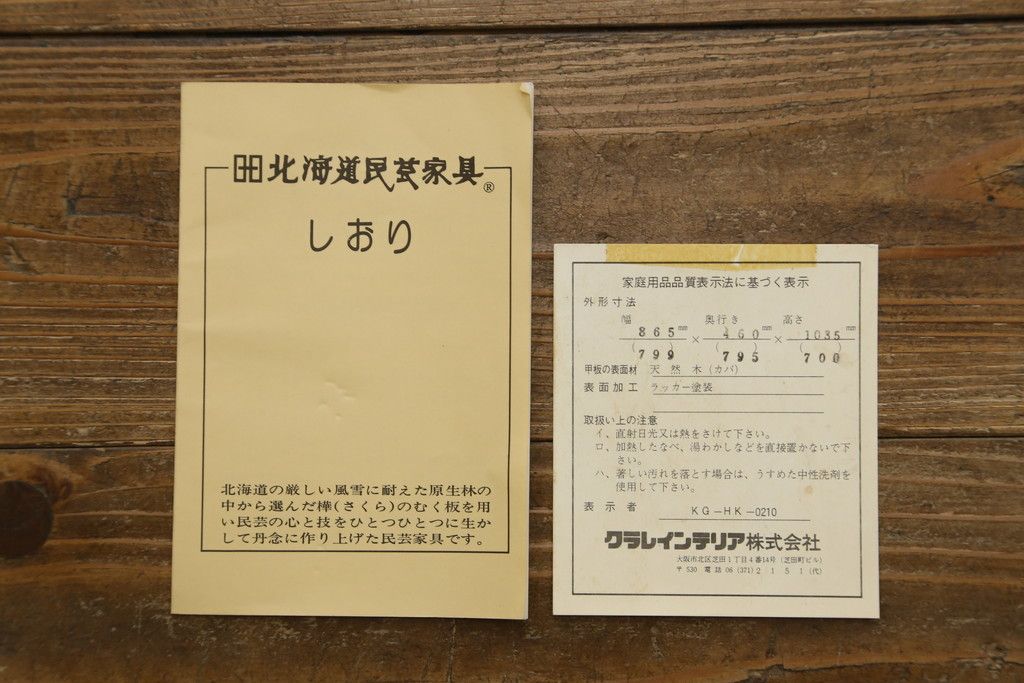 北海道民芸家具®
しおり
北海道の厳しい風雪に耐えた原生林の
中から選んだ樺(さくら)のむく板を用
い民芸の心と技をひとつひとつに生か
して丹念に作り上げた民芸家具です。
家庭用品品質表示法に基づく表示
外形寸法
幅 奥行き 高さ
865mm × 460mm × 1035mm
(799) (795) (700)
甲板の表面材 天然木(カバ)
表面加工 ラッカー塗装
取扱い上の注意
イ、直射日光又は熱をさけて下さい。
ロ、加熱したなべ、湯わかしなどを直接置かないで下
さい。
ハ、著しい汚れを落とす場合は、うすめた中性洗剤を
使用して下さい。
表示者 KG-HK-0210
クラレインテリア株式会社
大阪市北区芝田1丁目4番14号(芝田町ビル)
〒530 電話06(371)2151(代)